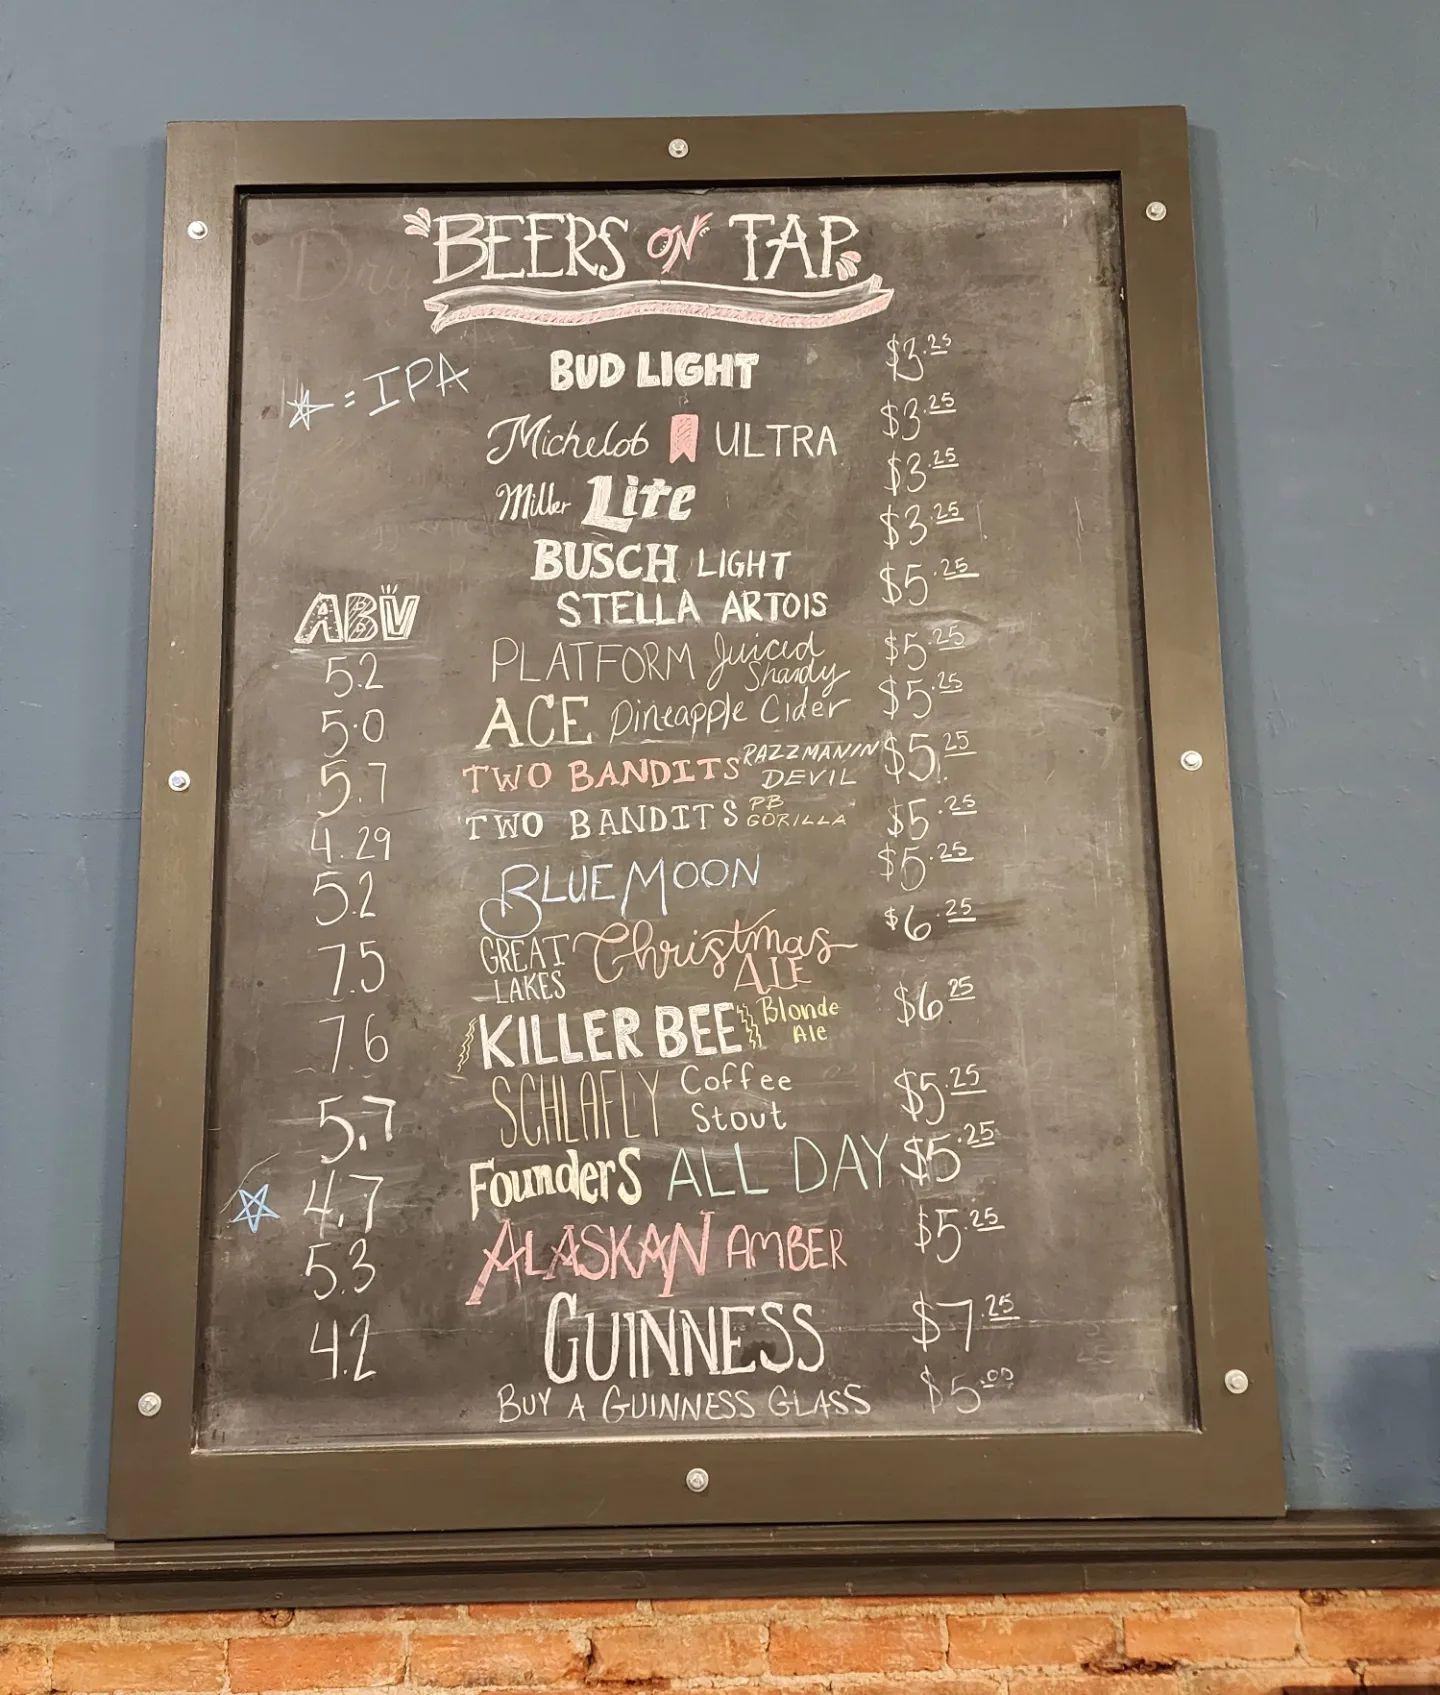 BEERS ON TAP
☆ = IPA
BUD LIGHT $3.25
Michelob ULTRA $3.25
Miller Lite $3.25
BUSCH LIGHT $3.25
ABV
STELLA ARTOIS $5.25
5.2 PLATFORM Juiced Shandy $5.25
5.0 ACE Pineapple Cider $5.25
5.7 TWO BANDITS RAZZMANIN DEVIL $5.25
4.29 TWO BANDITS PB GORILLA $5.25
5.2 BLUE MOON $5.25
7.5 GREAT LAKES Christmas ALE $6.25
7.6 KILLER BEE Blonde Ale $6.25
5.7 SCHLAFLY Coffee Stout $5.25
☆ 4.7 Founders ALL DAY $5.25
5.3 ALASKAN AMBER $5.25
4.2 GUINNESS $7.25
BUY A GUINNESS GLASS $5.00